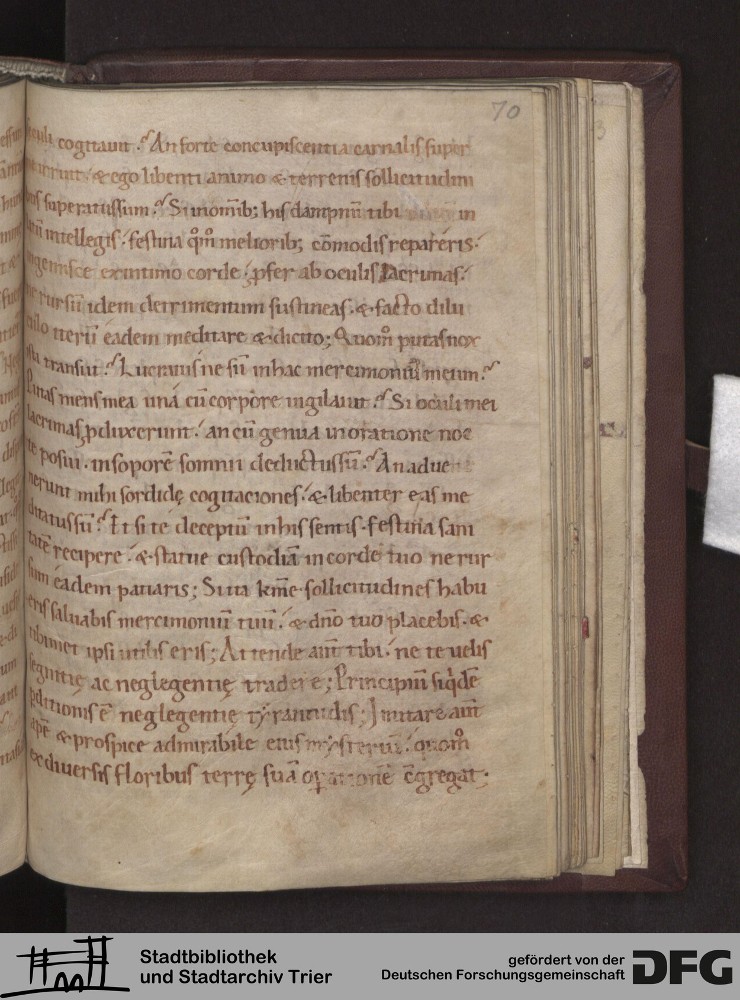 70
seculi cogitauit. An forte concupiscentia carnalis super
& ego libenti animo & terrenis sollicitudini
bus superatus sum. Si in omib; his dampnū tibi in
intellegis. festina qm̄ meliorib; cōmodis repareris.
ingemisce ex intimo corde. ꝓfer ab oculis lacrimas.
ne rursū idem detrimentum sustineas. & facto dilu
culo iterū eadem meditare & dicito; Quom̄ putas nox
ista transiit. Lucratus ne sū in hac mercimoniū meum.
Putas mens mea una cū corpore uigilauit. Si oculi mei
lacrimas ꝓduxerunt. an cū genua in oratione noc
te posui. in soporē somni deductus sū. An adue
nerunt mihi sordidę cogitaciones. & libenter eas me
ditatus sū. Et si te deceptū in his sentis. festina sani
tatē recipere. & statue custodiā in corde tuo ne rur
sum eadem patiaris; Si ita km̄e sollicitudines habu
eris saluabis mercimoniū tuū. & dn̄o tuo placebis. &
tibimet ipsi utilis eris; Attende aut̄ tibi. ne te uelis
segnitię ac neglegentię tradere; Principiū siqdē
ꝑditionis ē neglegentię tyrannidis; Imitare aut̄
apē & prospice admirabile eius mysteriū. quom̄
ex diuersis floribus terrę suā oꝑationē c̄gregat.
Stadtbibliothek
und Stadtarchiv Trier
gefördert von der
Deutschen Forschungsgemeinschaft
DFG